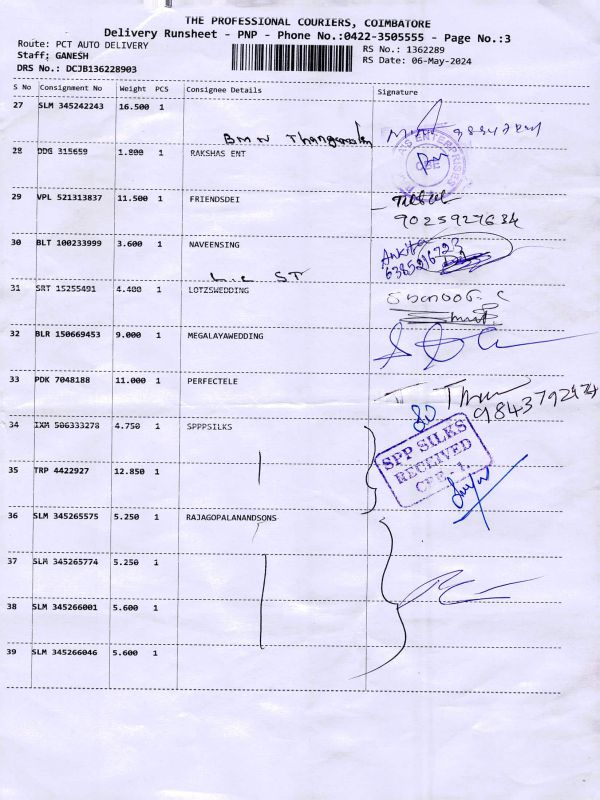 THE PROFESSIONAL COURIERS, COIMBATORE
Delivery Runsheet - PNP - Phone No.:0422-3505555 - Page No.:3
Route: PCT AUTO DELIVERY
RS No.: 1362289
Staff: GANESH
RS Date: 06-May-2024
DRS No.: DCJB136228903
S No Consignment No Weight PCS Consignee Details Signature
27 SLM 345242243 16.500 1
BMW
28 DDG 315659 1.800 1 RAKSHAS ENT
ENTERPRISES
CBE
29 VPL 521313837 11.500 1 FRIENDSDEI
9025927634
30 BLT 100233999 3.600 1 NAVEENSING
Ankita
6385216723
L.C ST
31 SRT 15255491 4.400 1 LOTZSWEDDING
32 BLR 150669453 9.000 1 MEGALAYAWEDDING
33 PDK 7048188 11.000 1 PERFECTELE
9843792474
34 IXM 506333278 4.750 1 SPPPSILKS
SPP SILKS
RECEIVED
CBE - 1.
35 TRP 4422927 12.850 1
36 SLM 345265575 5.250 1 RAJAGOPALANANDSONS
37 SLM 345265774 5.250 1
38 SLM 345266001 5.600 1
39 SLM 345266046 5.600 1